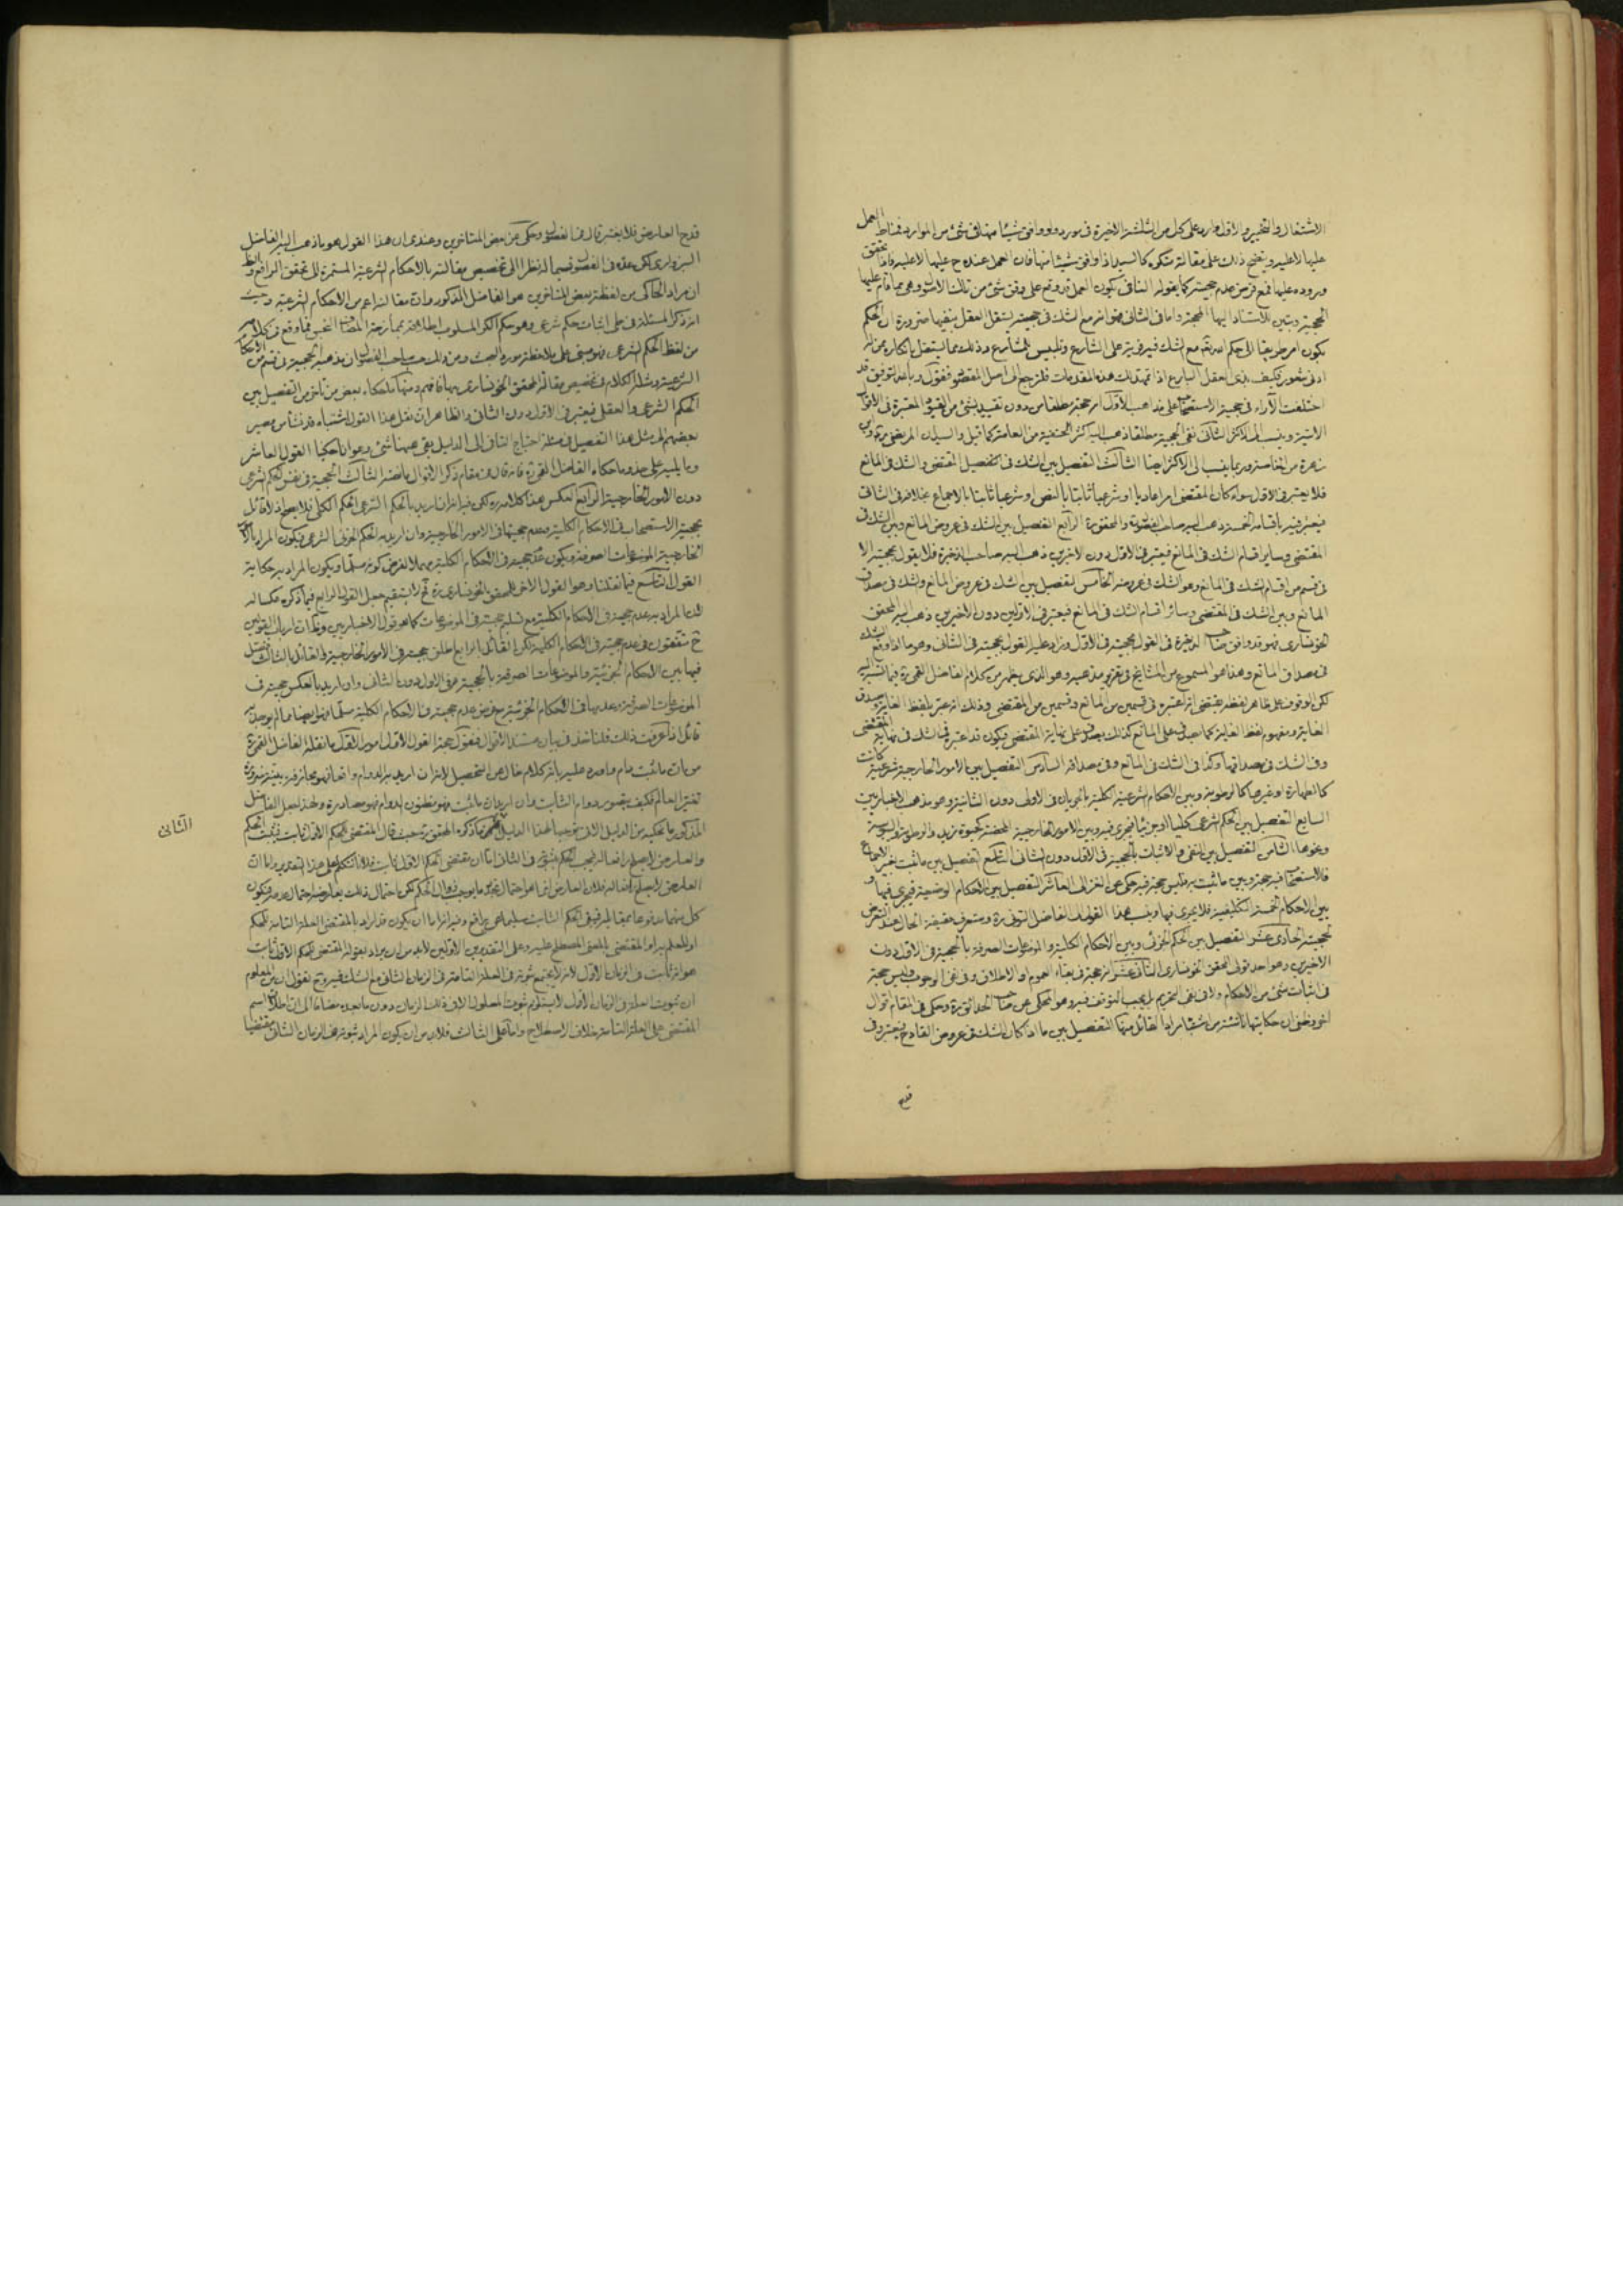 الاشتغال والتخيير والاول وارد على كل من الثلثة الاخيرة في مورده ولو وافق شيئا منها في شئ من الموارد فمناط العمل
عليها لا عليه ويتضح ذلك على مقالة
وروده عليها فمع فرض عدم حجيته كما يقوله النافي يكون العمل قد وقع على وفق شئ من تلك الاصول وهي مما قام عليها
الحجة وتبين الاستناد اليها الحجة واما في الثاني فهو انه مع الشك في حجيته يستقل العقل بنفيها ضرورة ان الحكم
يكون امر طريقا الى حكم الشرع مع الشك فيه فرية على الشارع وتلبيس للشارع وذلك مما يستقل بانكاره من له
ادنى شعور فكيف بذي العقل البارع اذا تمهد لك هذه المقدمات فلنرجع الى اصل المقصود فنقول وبالله التوفيق قد
اختلفت الآراء في حجية الاستصحاب على مذاهب الاول انه حجة مطلقا من دون تقييد بشئ من القيود المعتبرة في الاقوال
الاتية وينسب الى الاكثر الثاني نفي الحجية مطلقا ذهب اليه اكثر الحنفية من العامة كما قيل والسيدان المرتضى وابن
زهرة من الخاصة وربما ينسب الى الاكثر ايضا الثالث التفصيل بين الشك في المقتضى والشك في المانع
فلا يعتبر في الاول سواء كان المقتضى امرا عاديا او شرعيا ثابتا بالنص او شرعيا ثابتا بالاجماع بخلافه في الثاني
فيعتبر فيه باقسامه الخمسة ذهب اليه صاحب الفصول والمحقق الرابع التفصيل بين الشك في عروض المانع وبين الشك في
المقتضى وساير اقسام الشك في المانع فيعتبر في الاول دون الاخرين ذهب اليه صاحب الذخيرة فلا يقول بحجيته الا
في قسم من اقسام الشك في المانع وهو الشك في عروضه الخامس التفصيل بين الشك في عروض المانع والشك في مصداق
المانع وبين الشك في المقتضى وسائر اقسام الشك في المانع فيعتبر في الاولين دون الاخيرين ذهب اليه المحقق
الخونساري فهو قد وافق صاحب الذخيرة في القول بحجيته في الاول وزاد عليه القول بحجيته في الثاني وهو ما اذا وقع الشك
في مصداق المانع وهذا هو المسموع من المشايخ في تقرير مذهبه وهو الذي يظهر من كلام الفاضل القمي فيما نسب اليه
لكن الوقوف على ظاهر لفظه يقتضي انه اعتبره في قسمين من المانع وقسمين من المقتضى وذلك انه عبر بلفظ الغاية وصدق
الغاية ومفهوم لفظ الغاية كما يصدق على المانع كذلك يصدق على نهاية المقتضى فيكون قد اعتبر في الشك في نهاية المقتضى
وفي الشك في مصداقها وكذا في الشك في المانع وفي مصداقه السادس التفصيل بين الامور الخارجية شرعية كانت
كالطهارة او غيرها كالرطوبة وبين الاحكام الشرعية الكلية بالجريان في الاولى دون الثانية وهو مذهب الاخباريين
السابع التفصيل بين الحكم الشرعي كليا او جزئيا فيجري فيه وبين الامور الخارجية المحضة كحيوة زيد والرطوبة واليبوسة
ونحوها الثامن التفصيل بين النفي والاثبات بالحجية في الاول دون الثاني التاسع التفصيل بين ما ثبت بغير الاجماع
فالاستصحاب فيه حجة وبين ما ثبت به فليس حجة فيه حكي عن الغزالي العاشر التفصيل بين الاحكام الوضعية فيجري فيها و
بين الاحكام الخمسة التكليفية فلا يجري فيها وينسب هذا القول الى الفاضل التوني وستعرف حقيقة الحال عند التعرض
لحجيته الحادي عشر التفصيل بين الحكم الجزئي وبين الاحكام الكلية والموضوعات الصرفة بالحجية في الاول دون
الاخيرين وهو احد قولي المحقق الخونساري الثاني عشر انه حجة في بقاء العموم والاطلاق وفي نفي الوجوب وليس حجة
في اثبات شئ من الاحكام ولا في نفي التحريم بل يجب التوقف فيه وهو المحكي عن صاحب الحدائق وحكي في المقام اقوال
اخر وظني ان حكايتها ناشئة من اشتباه مراد القائل منها التفصيل بين ما اذا كان الشك في عروض القادح فيعتبر وفي
قدح
قدح العارض فلا يعتبر قال في الفصول وحكي عن بعض المتاخرين وعندي ان هذا القول هو ما ذهب اليه الفاضل
السبزواري لكن عده في الفصول قسيما له نظرا الى تخصيص مقالته بالاحكام الشرعية المستمرة الى تحقق الرافع والظاهر
ان مراد الحاكي من لفظة بعض المتاخرين هو الفاضل المذكور وان مقالته اعم من الاحكام الشرعية وحيث
انه ذكر المسئلة في اثبات حكم شرعي وهو حكم الكر المسلوب اطلاقه بممازجة المضاف النجس فما وقع في كلامه
من لفظ الحكم الشرعي فهو مبني على ملاحظة مورد البحث ومن ذلك صاحب الفصول ان مذهبه الحجية في قسم من الاحكام
الشرعية ومثله الكلام في تخصيص مقالة المحقق الخونساري بها فافهم ومنها ما حكاه بعض من تاخر من التفصيل بين
الحكم الشرعي والعقلي فيعتبر في الاول دون الثاني والظاهر ان نقل هذا القول اشتباه قد نشأ من مصير
بعضهم الى مثل هذا التفصيل في مسئلة احتياج النافي الى الدليل بقي هيهنا شئ وهو انا حكينا القول العاشر
دون الامور الخارجية الرابع العكس هذا كلامه لكن فيه انه ان اريد بالحكم الشرعي الحكم الكلي فلا يصح اذ لا قائل
بحجية الاستصحاب في الاحكام الكلية وعدم حجيته في الامور الخارجية وان اريد به الحكم الجزئي الشرعي فيكون المراد بالامور
الخارجية الموضوعات الصرفة ويكون عدم حجيته في الاحكام الكلية مهملا لفرض كونه مسلما ويكون المراد به حكاية
المانع المراد به عدم حجيته في الاحكام الكلية مع تسليم حجيته في الموضوعات كما هو قول الاخباريين
فيها بين الاحكام الجزئية والموضوعات الصرفة بالحجية في الاول دون الثاني وان اريد بالعكس حجيته في
الموضوعات الصرفة وعدمها في الاحكام الجزئية مع فرض عدم حجيته في الاحكام الكلية مسلما فهو ايضا مما لم يوجد به
قائل اذا عرفت ذلك فلناخذ في بيان مستند الاقوال فنقول حجة القول الاول امور الاول ما نقله الفاضل القمي
من ان ما ثبت دام واورد عليه بانه كلام خال من التحصيل لانه ان اريد به الدوام واقعا فهو مجازفة بينة ضرورة
تغير العالم فكيف يتصور دوام الثابت وان اريد ان ما ثبت فهو مظنون الدوام فهو مصادرة ولهذا جعل الفاضل
المذكور ما يحكيه من الدليل الثاني توجيها لهذا الدليل الثاني ما ذكره المحقق حيث قال المقتضى للحكم الاول ثابت فيثبت الحكم
والعارض لا يصلح رافعا له فيجب الحكم بثبوته في الثاني اما ان مقتضى الحكم الاول ثابت فلانا نتكلم على هذا التقدير واما ان
العارض لا يصلح رافعا له فلان العارض انما هو احتمال تجدد ما يوجب زوال الحكم لكن احتمال ذلك يعارضه احتمال عدمه فيكون
كل منهما مدفوعا بمقابله فيبقى الحكم الثابت سليما عن رافع وفيه انه اما ان يكون قد اراد بالمقتضى العلة التامة للحكم
او للعلم به او المقتضى بالمعنى المصطلح عليه وعلى التقديرين الاولين لابد من ان يراد بقوله المقتضى للحكم الاول ثابت
هو انه ثابت في الزمان الاول لانه لا يجتمع ثبوته في العلة التامة في الزمان الثاني مع الشك فيه و ح نقول ان من المعلوم
ان ثبوت العلة في الزمان الاول لا يستلزم ثبوت المعلول الا في ذلك الزمان دون ما بعده مضافا الى ان اطلاق اسم
المقتضى على العلة التامة خلاف الاصطلاح واما على الثالث فلابد من ان يكون المراد ثبوته في الزمان الثاني مقتضيا
الثاني